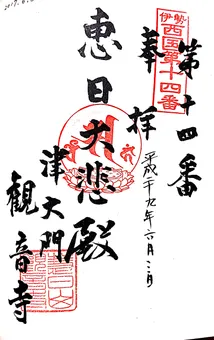 伊勢
西国第十四番
第十四番
奉拝
平成二十九年六月三日
恵日大悲殿
津大門
観音寺